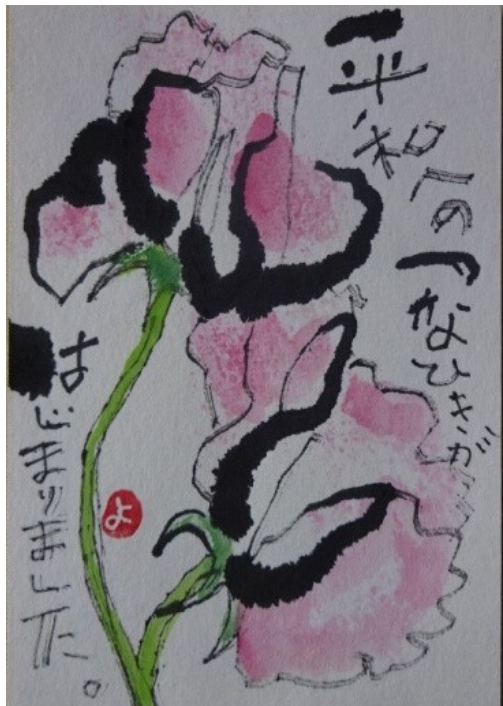 平和へのつなひきが
はじまりました。
よ